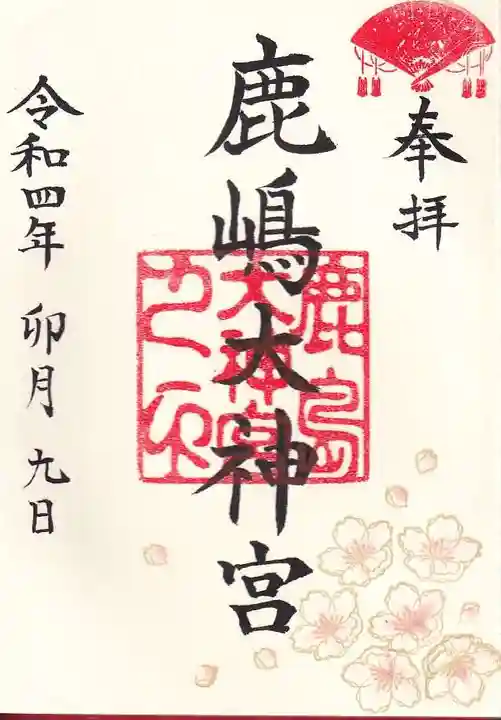 奉拝
鹿嶋大神宮
令和四年 卯月 九日
鹿島
大神宮
之印